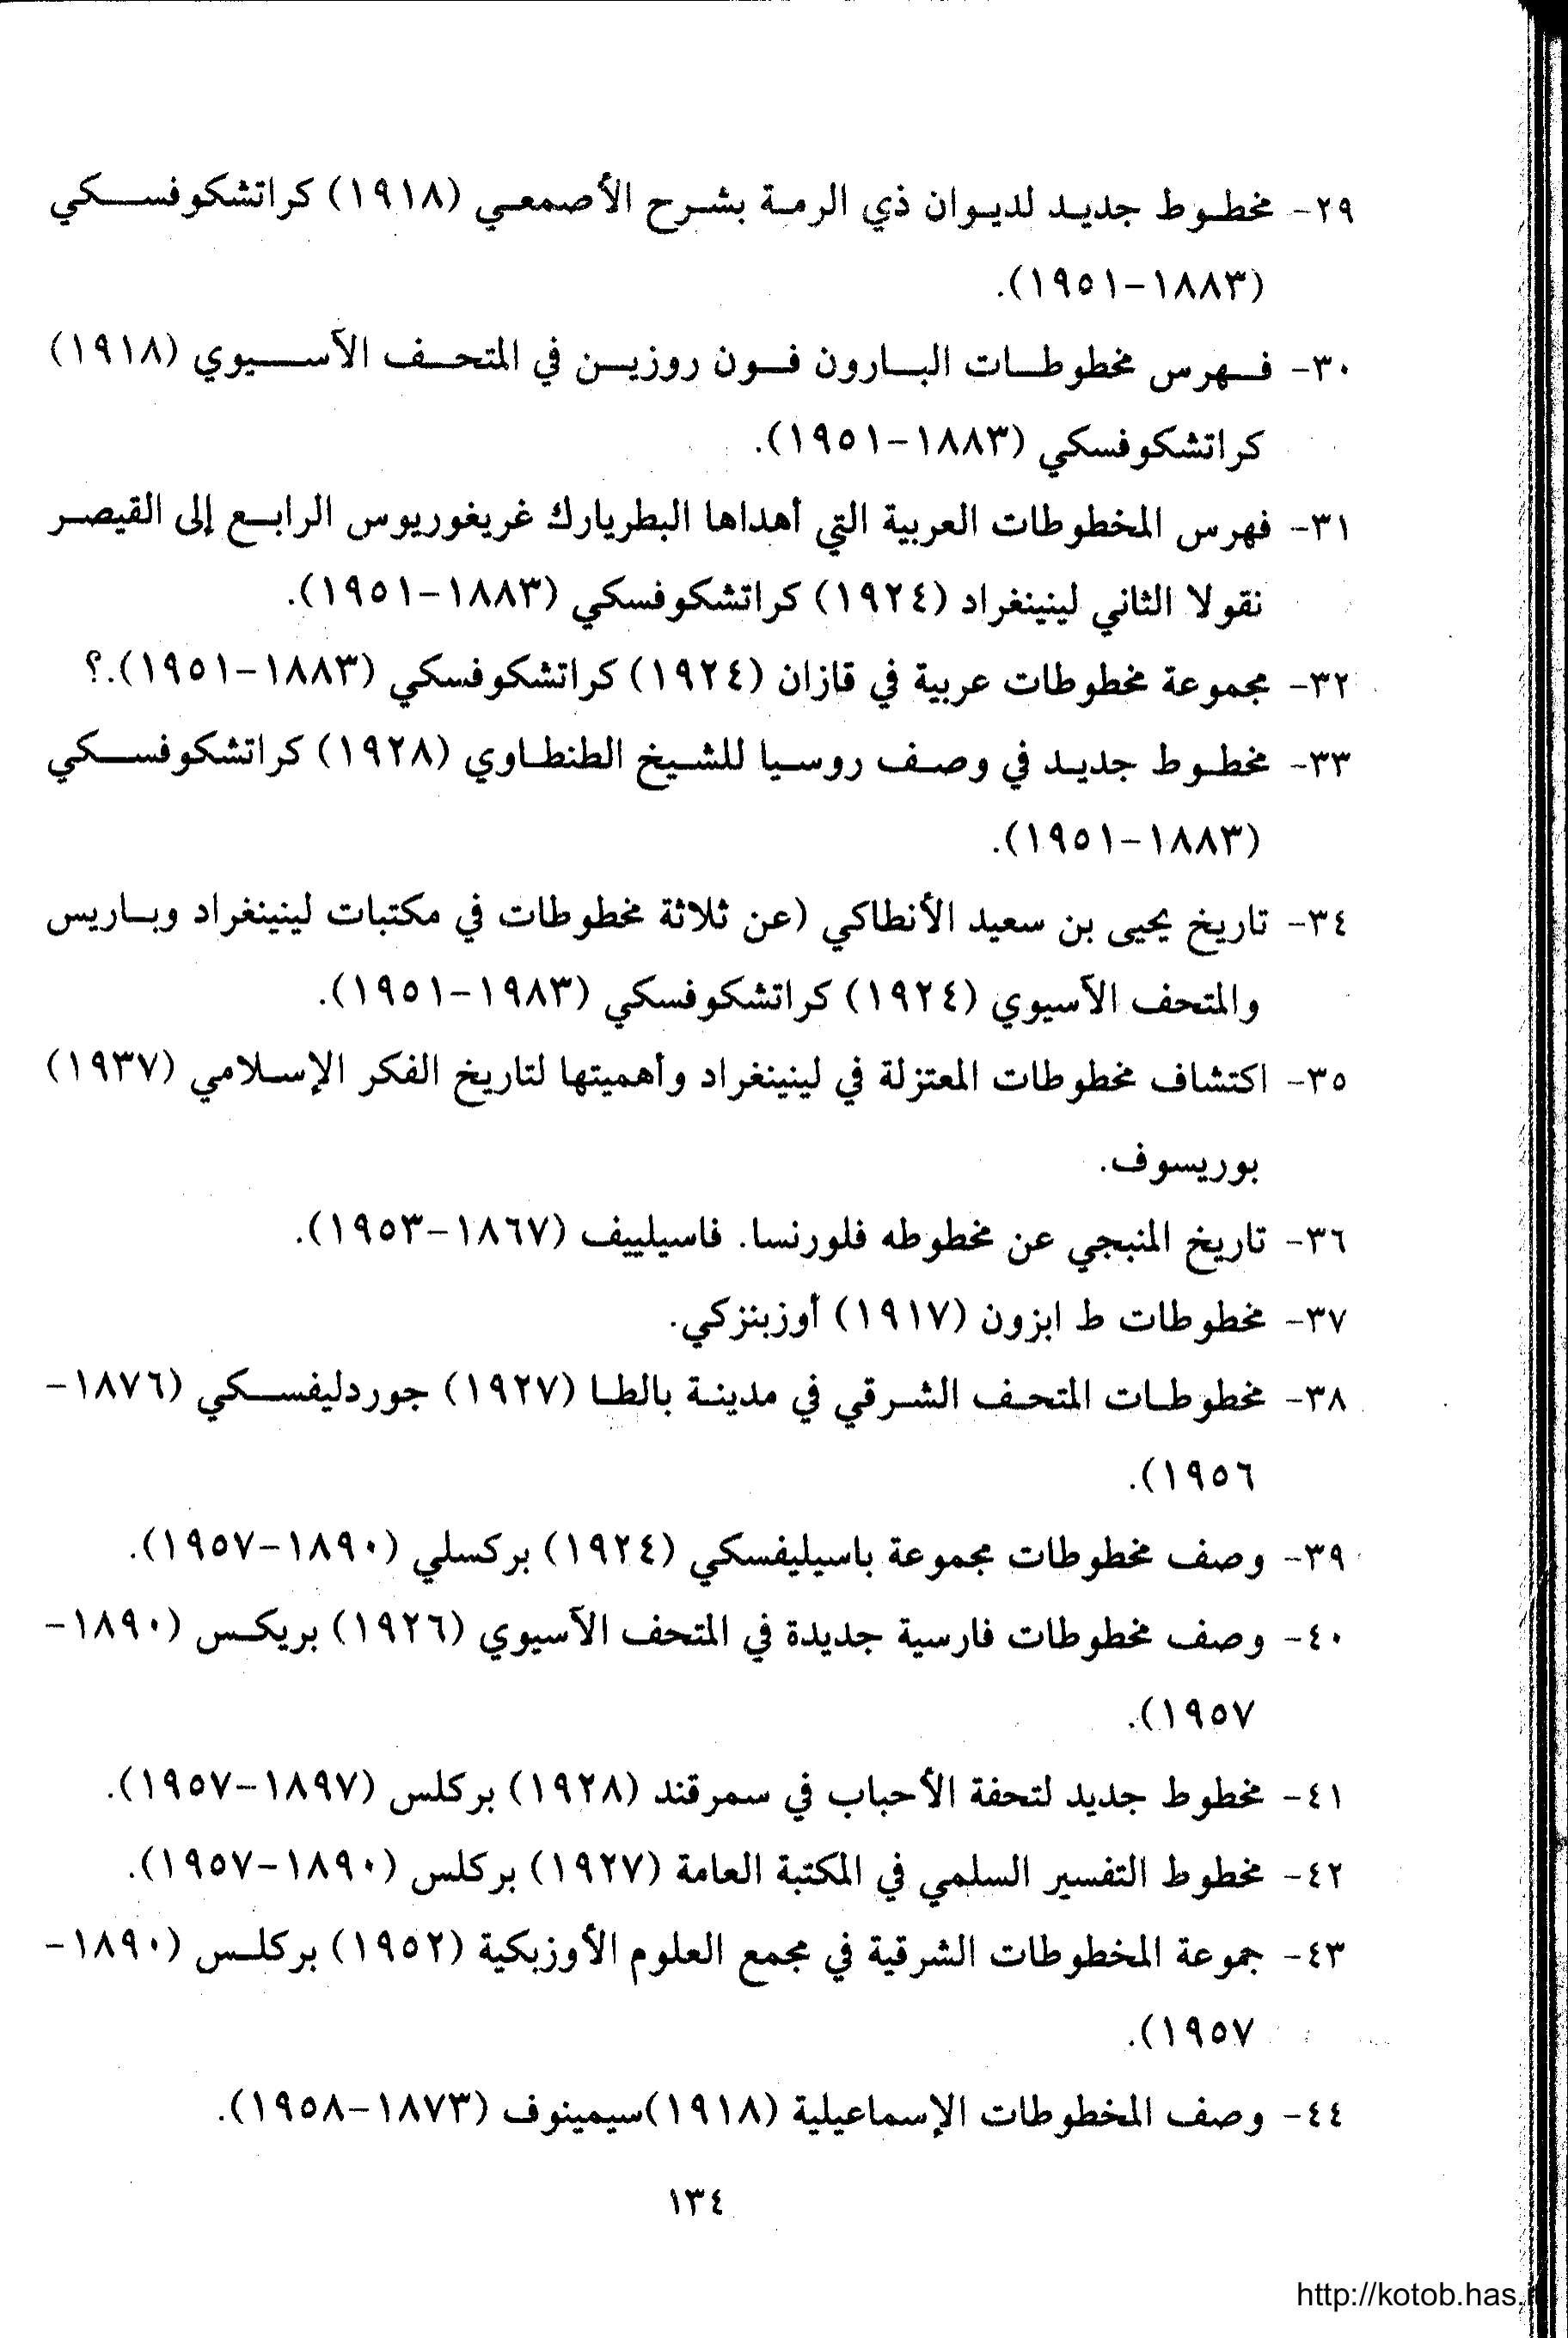 ٢٩- مخطوط جديد لديوان ذي الرمة بشرح الأصمعي (١٩١٨) كراتشكوفسكي
(١٨٨٣-١٩٥١).
٣٠- فهرس مخطوطات البارون فون روزين في المتحف الآسيوي (١٩١٨)
كراتشكوفسكي (١٨٨٣-١٩٥١).
٣١- فهرس المخطوطات العربية التي أهداها البطريارك غريغوريوس الرابع إلى القيصر
نقولا الثاني لينينغراد (١٩٢٤) كراتشكوفسكي (١٨٨٣-١٩٥١).
٣٢- مجموعة مخطوطات عربية في قازان (١٩٢٤) كراتشكوفسكي (١٨٨٣-١٩٥١).؟
٣٣- مخطوط جديد في وصف روسيا للشيخ الطنطاوي (١٩٢٨) كراتشكوفسكي
(١٨٨٣-١٩٥١).
٣٤- تاريخ يحيى بن سعيد الأنطاكي (عن ثلاثة مخطوطات في مكتبات لينينغراد وباريس
والمتحف الآسيوي (١٩٢٤) كراتشكوفسكي (١٩٨٣-١٩٥١).
٣٥- اكتشاف مخطوطات المعتزلة في لينينغراد وأهميتها لتاريخ الفكر الإسلامي (١٩٣٧)
بوريسوف.
٣٦- تاريخ المنبجي عن مخطوطه فلورنسا. فاسيلييف (١٨٦٧-١٩٥٣).
٣٧- مخطوطات ط ابزون (١٩١٧) أوزبنزكي.
٣٨- مخطوطات المتحف الشرقي في مدينة بالطا (١٩٢٧) جوردليفسكي (١٨٧٦-
١٩٥٦).
٣٩- وصف مخطوطات مجموعة باسيليفسكي (١٩٢٤) بركسلي (١٨٩٠-١٩٥٧).
٤٠- وصف مخطوطات فارسية جديدة في المتحف الآسيوي (١٩٢٦) بريكس (١٨٩٠-
١٩٥٧).
٤١- مخطوط جديد لتحفة الأحباب في سمرقند (١٩٢٨) بركلس (١٨٩٧-١٩٥٧).
٤٢- مخطوط التفسير السلمي في المكتبة العامة (١٩٢٧) بركلس (١٨٩٠-١٩٥٧).
٤٣- جموعة المخطوطات الشرقية في مجمع العلوم الأوزبكية (١٩٥٢) بركلس (١٨٩٠-
١٩٥٧).
٤٤- وصف المخطوطات الإسماعيلية (١٩١٨)سيمينوف (١٨٧٣-١٩٥٨).
١٣٤
http://kotob.has.